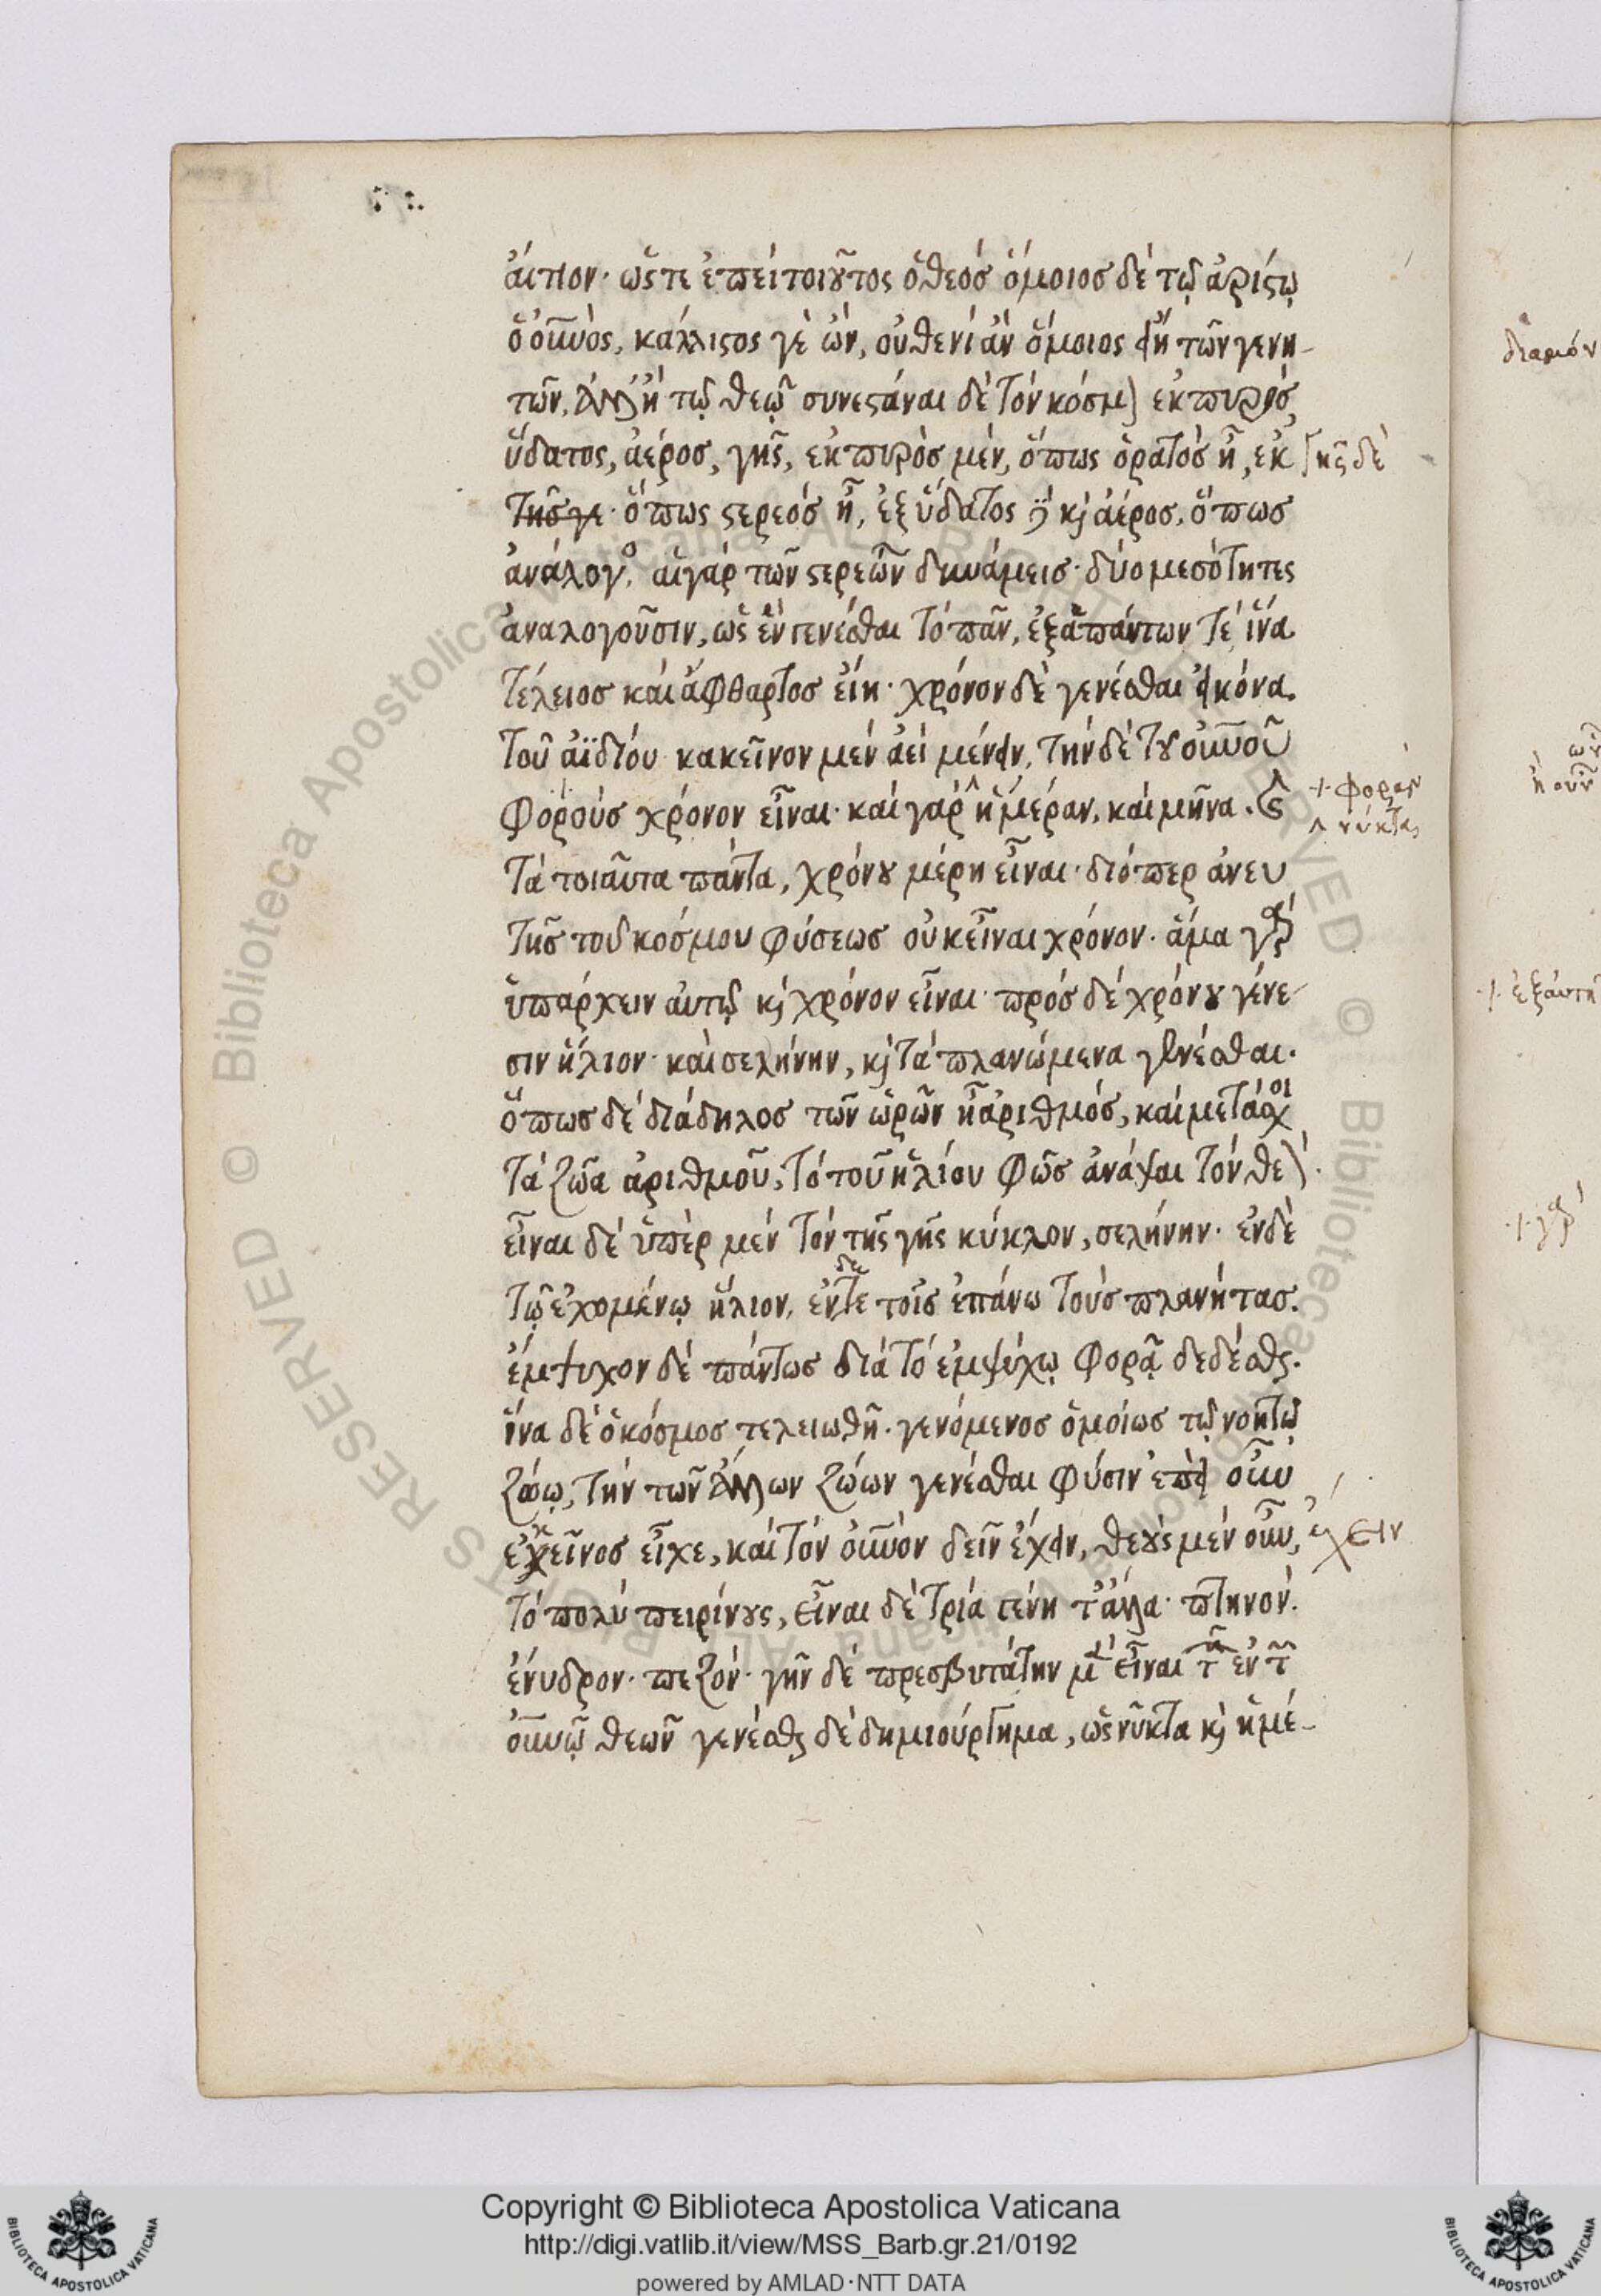 ἄιτιον· ὥς τε ἐπεὶ τοιοῦτος ὁ θεός ὅμοιος δέ τῷ ἀρίστῳ
ὁ οὐνὸς, κάλλιστος γὲ ὢν, οὐθενί ἂν ὅμοιος εἴη τῶν γενη-
τῶν, ἀλλ' ἢ τῷ θεῷ συνεστάναι δὲ τόν κόσμ) ἐκ πυρός,
ὕδατος, ἀέρος, γῆς, ἐκ πυρὸς μὲν, ὅπως ὁρατὸς ἦ, ἐκ
γῆς δὲ
τῆσγε· ὅπως στερεός ἦ, ἐξ ὕδατος κὶ ἀέρος, ὅπως
ἀνάλογο. αἱ γάρ τῶν στερεῶν δυνάμεις· δύο μεσότητες
ἀναλογοῦσιν, ὡς ἓν γενέσθαι τό πᾶν, ἐξ ἁπάντων τέ ἵνα
τέλειος καί ἄφθαρτος εἴη· χρόνον δὲ γενέσθαι εἰκόνα.
τοῦ ἀϊδίου κακεῖνον μέν ἀεί μένειν, τήν δέ τοῦ οὐνοῦ
φορούς χρόνον εἶναι· καί γάρ ἡμέραν, καί μῆνα.
⁒ φοράν
^ νύκτας
τά τοιαῦτα πάντα, χρόνου μέρη εἶναι· διόπερ ἄνευ
τῆς τοῦ κόσμου φύσεως οὐκ εἶναι χρόνον· ἅμα γὰρ
ὑπάρχειν αὐτῷ κὶ χρόνον εἶναι· πρός δέ χρόνου γένε-
σιν ἥλιον· καὶ σελήνην, κὶ τά πλανώμενα γενέσθαι.
ὅπως δέ διάδηλος τῶν ὡρῶν ἦ ἀριθμός, καί μετάσχοι
τά ζῶα ἀριθμοῦ, τό τοῦ ἡλίου φῶς ἀνάψαι τόν θε)·
εἶναι δέ ὑπὲρ μέν τόν τῆς γῆς κύκλον, σελήνην· ἐν δὲ
τῷ ἐχομένῳ ἥλιον, ἐν τε δὲ τοῖς ἐπάνω τούς πλανήτας.
ἔμψυχον δέ πάντως διά τό ἐμψύχῳ φορᾷ δεδέσθαι.
ἵνα δὲ ὁ κόσμος τελειωθῆ. γενόμενος ὁμοίως τῷ νοητῷ
ζώῳ, τήν τῶν ἄλλων ζώων γενέσθαι φύσιν ἐπεὶ οὖν
ἐκεῖνος εἶχε, καί τόν οὐνόν δεῖν ἔχειν, θεοὺς μέν οὖν,
ἔχειν
τό πολύ πειρίνους, εἶναι δὲ τρία γένη τ' ἄλλα· πτηνόν.
ἔνυδρον· πεζόν· γῆν δέ πρεσβυτάτην μ εἶναι τ ἐν τ
οὐνῷ θεῶν γενέσθαι δέ δημιούργημα, ὡς νύκτα κὶ ἡμέ-
διαμόν
ἢ οὐν
⁒ ἐξ αὐτῆ
⁒ γὰρ
Copyright © Biblioteca Apostolica Vaticana
http://digi.vatlib.it/view/MSS_Barb.gr.21/0192
powered by AMLAD·NTT DATA
BIBLIOTECA APOSTOLICA VATICANA
BIBLIOTECA APOSTOLICA VATICANA